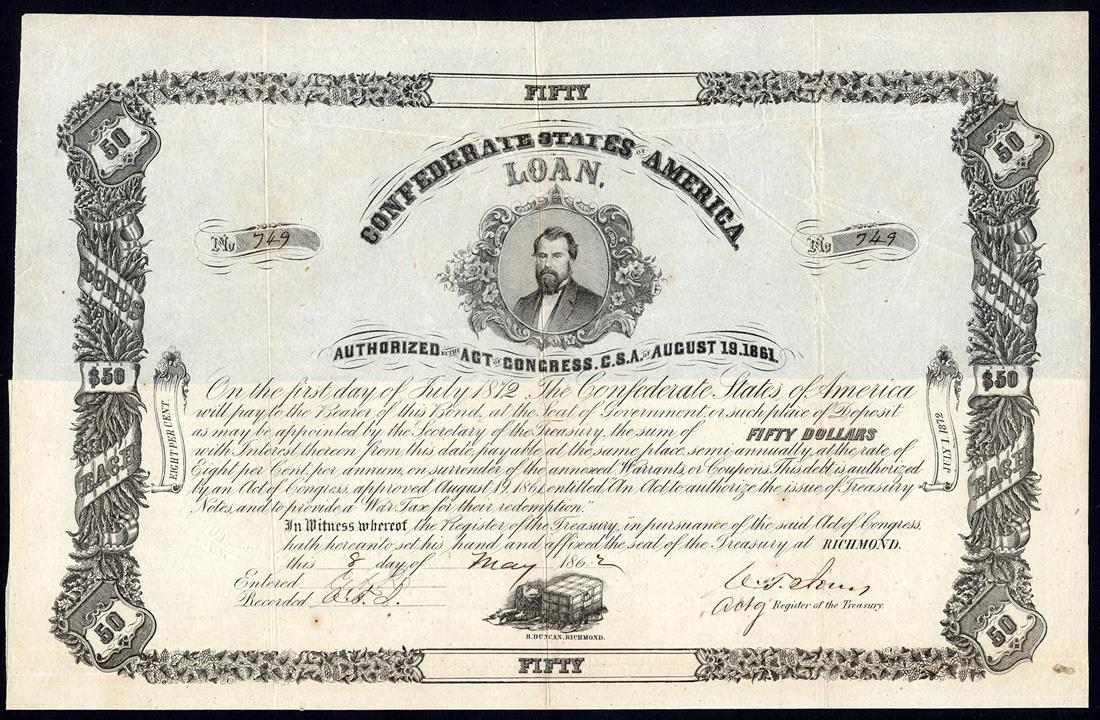 FIFTY
50
50
CONFEDERATE STATES OF AMERICA
LOAN.
No 749
No 749
BONDS
BONDS
AUTHORIZED BY THE ACT OF CONGRESS. C.S.A. OF AUGUST 19. 1861.
$50
$50
EIGHT PER CENT.
JULY 1 1872
EACH
EACH
On the first day of July 1872 The Confederate States of America
will pay to the Bearer of this Bond, at the Seat of Government, or such place of Deposit
as may be appointed by the Secretary of the Treasury, the sum of FIFTY DOLLARS
with Interest thereon from this date, payable at the same place, semi-annually, at the rate of
Eight per Cent, per annum, on surrender of the annexed Warrants, or Coupons. This debt is authorized
by an Act of Congress, approved August 19, 1861, entitled "An Act to authorize the issue of Treasury
Notes, and to provide a War Tax for their redemption."
In Witness whereof the Register of the Treasury, in pursuance of the said Act of Congress,
hath hereunto set his hand and affixed the seal of the Treasury at RICHMOND.
this 8 day of May 1862
Entered
Recorded
Actg Register of the Treasury.
B. DUNCAN, RICHMOND.
50
50
FIFTY